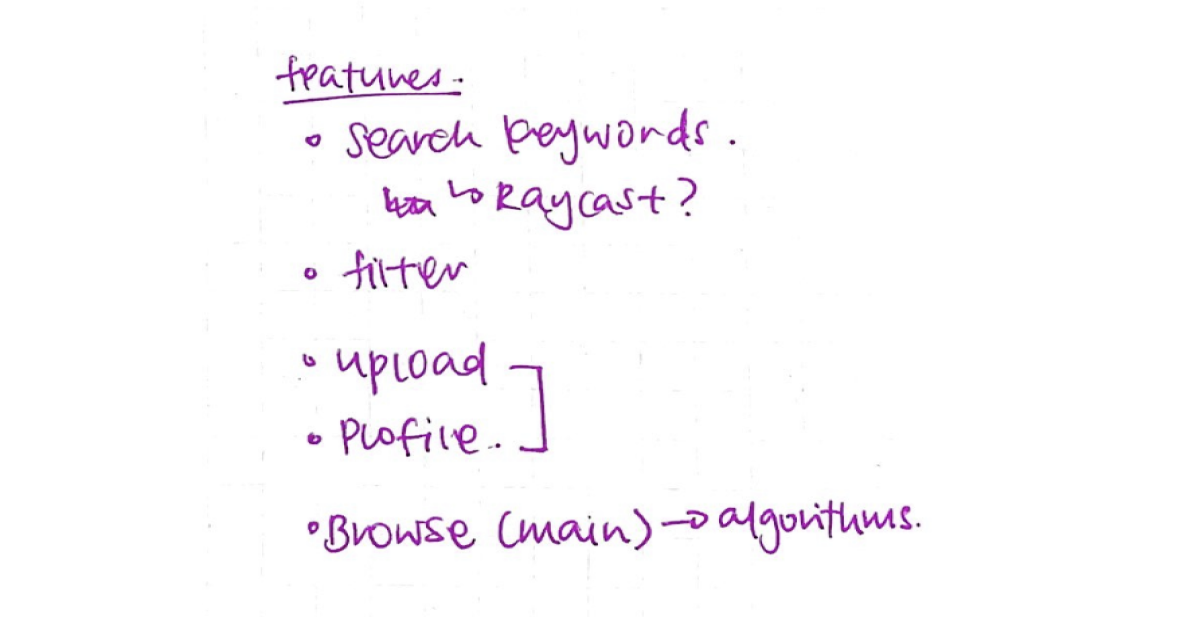 features.
• search keywords.
↳ Raycast?
• filter
• upload
• Profile.
• Browse (main) → algorithms.